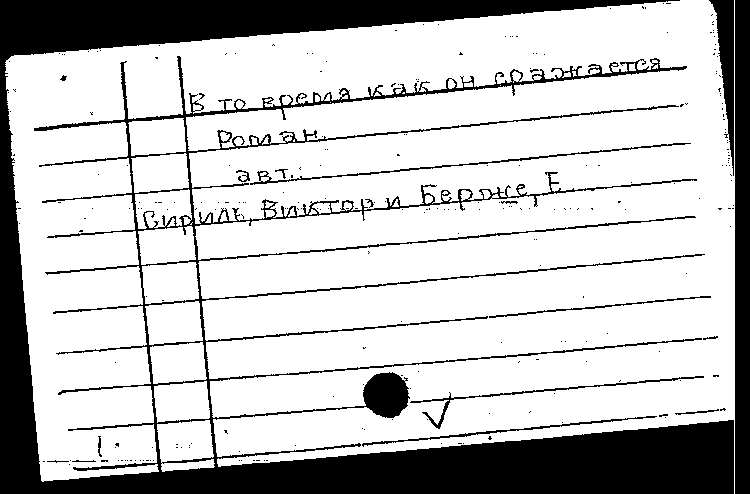 В то время как он сражается
Роман.
авт.:
Сириль, Виктор и Берже, Е